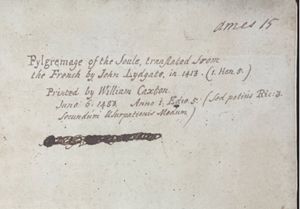 ames 15
Pylgremage of the Soule, translated from
the French by John Lydgate, in 1413. (1. Hen. 5.)
Printed by William Caxton.
June 6. 1483. Anno 1. Edw. 5. (Sed potius Ric: 3.
Secundum Usurpationis Modum)